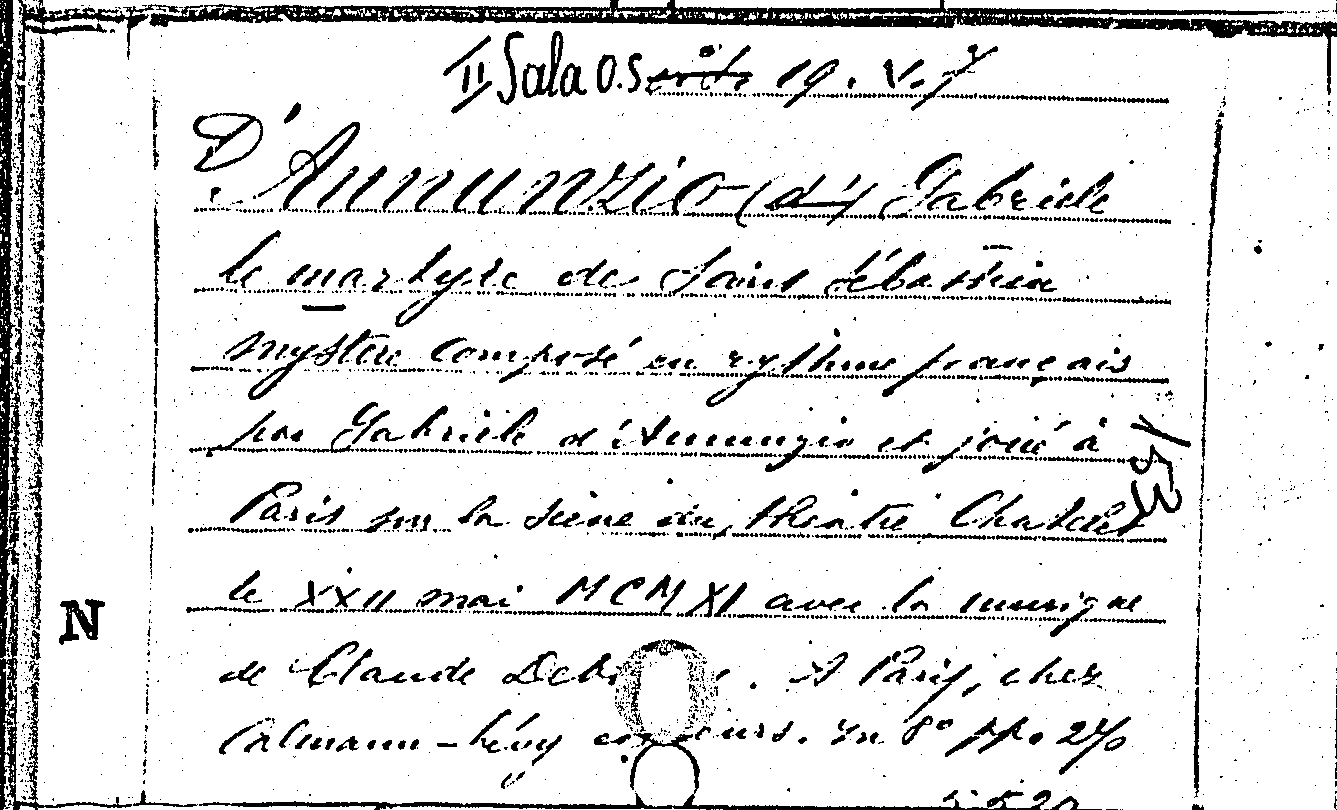 II Sala O.S 19.V.7
D'Annunzio (d') Gabriele
le martyre de Saint Sébastien
mystère composé en rythme français
par Gabriele d'Annunzio et joué à
Paris sur la scène du théatre Chatelet
N
le XXII mai MCMXI avec la musique
de Claude . A Paris, chez
Calmann-Lévy . In 8° pp. 270
5520